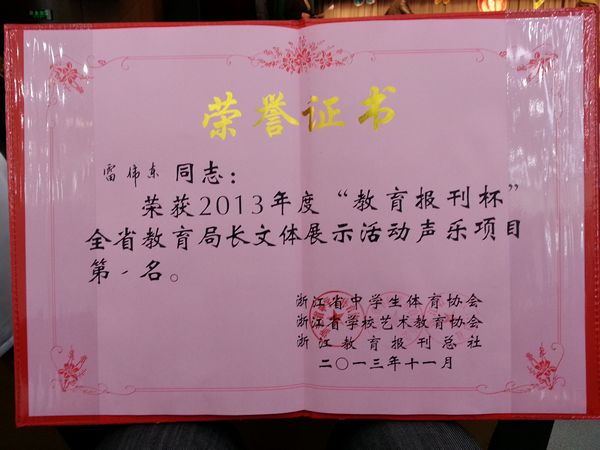 荣誉证书
雷伟东 同志：
荣获2013年度“教育报刊杯”
全省教育局长文体展示活动声乐项目
第一名。
浙江省中学生体育协会
浙江省学校艺术教育协会
浙江教育报刊总社
二〇一三年十一月